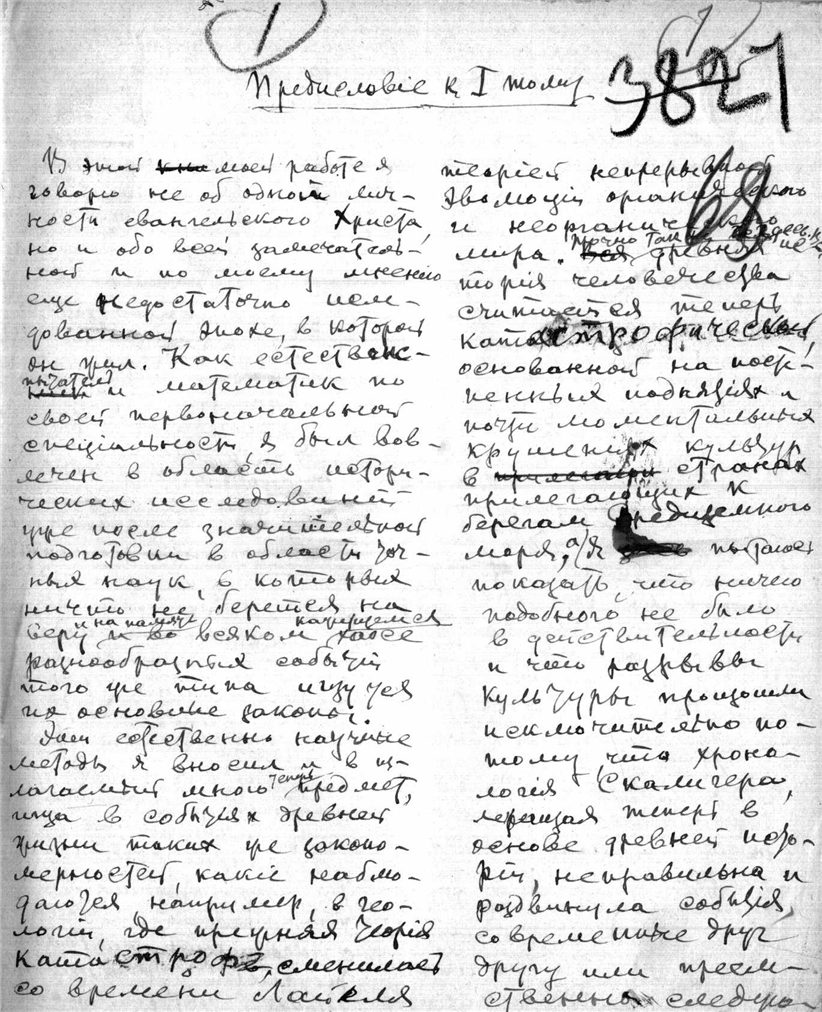 1
Предисловіе к I тому
3821
68
В этой моей работе я
говорю не об одной лич-
ности евангельского Христа,
но и обо всей замечатель-
ной и по моему мнению
еще недостаточно иссле-
дованной эпохе, в которой
он жил. Как естество-
испытатель и математик по
своей первоначальной
спеціальности, я был вов-
лечен в область истори-
ческих исследований
уже после значительной
подготовки в области точ-
ных наук, в которых
ничто не берется на
веру и на память
во всяком кажущемся хаосе
разнообразных событій
того же типа ищутся
их основные законы.
Эти естественно научные
методы я вносил и в из-
лагаемый мною теперь предмет,
ища в событіях древней
жизни таких же законо-
мерностей, какіе наблю-
даются, например, в гео-
логіи, где прежняя теорія
катастроф, сменилась
со времени Лайелля
теоріей непрерывной
эволюціи органического
и неорганического
мира. Точно так древняя
исторія человечества
считается теперь
катастрофической,
основанной на посте-
пенных поднятіях и
почти моментальных
крушеніях культур
в странах
прилегающих к
берегам Средиземного
моря, а я пытаюсь
показать, что ничего
подобного не было
в действительности
и что разрывы
культуры произошли
исключительно по-
тому, что хроно-
логія Скалигера,
лежащая теперь в
основе древней исто-
ріи, неправильна и
раздвинула событія,
современные друг
другу или преем-
ственно следую-